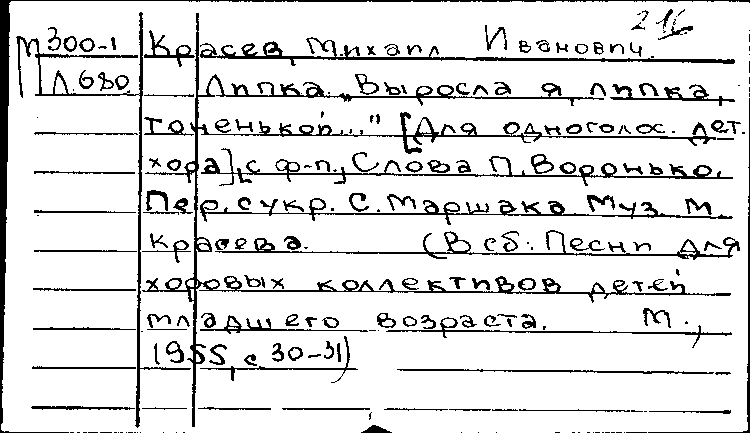 216
М300-1 Красев, Михаил Иванович.
Л680 Липка. „Выросла я, липка,
тоненькой..." [Для одноголос. дет.
хора], с ф-п., Слова П. Воронько.
Пер. с укр. С. Маршака Муз. М.
Красева. (В сб: Песни для
хоровых коллективов детей
младшего возраста. М.,
1955, с. 30-31)